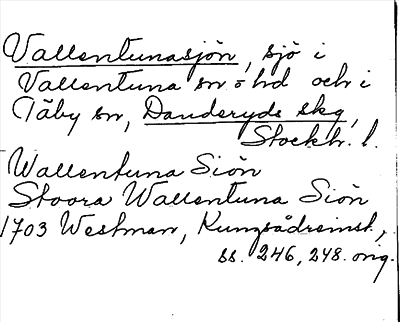 Vallentunasjön, sjö i
Vallentuna sn o hd och i
Täby sn, Danderyds skg,
Stockh. l.
Wallentuna Siön
Stoora Wallentuna Siön
1703 Westman, Kungsådreinst.,
ss. 246, 248. orig.